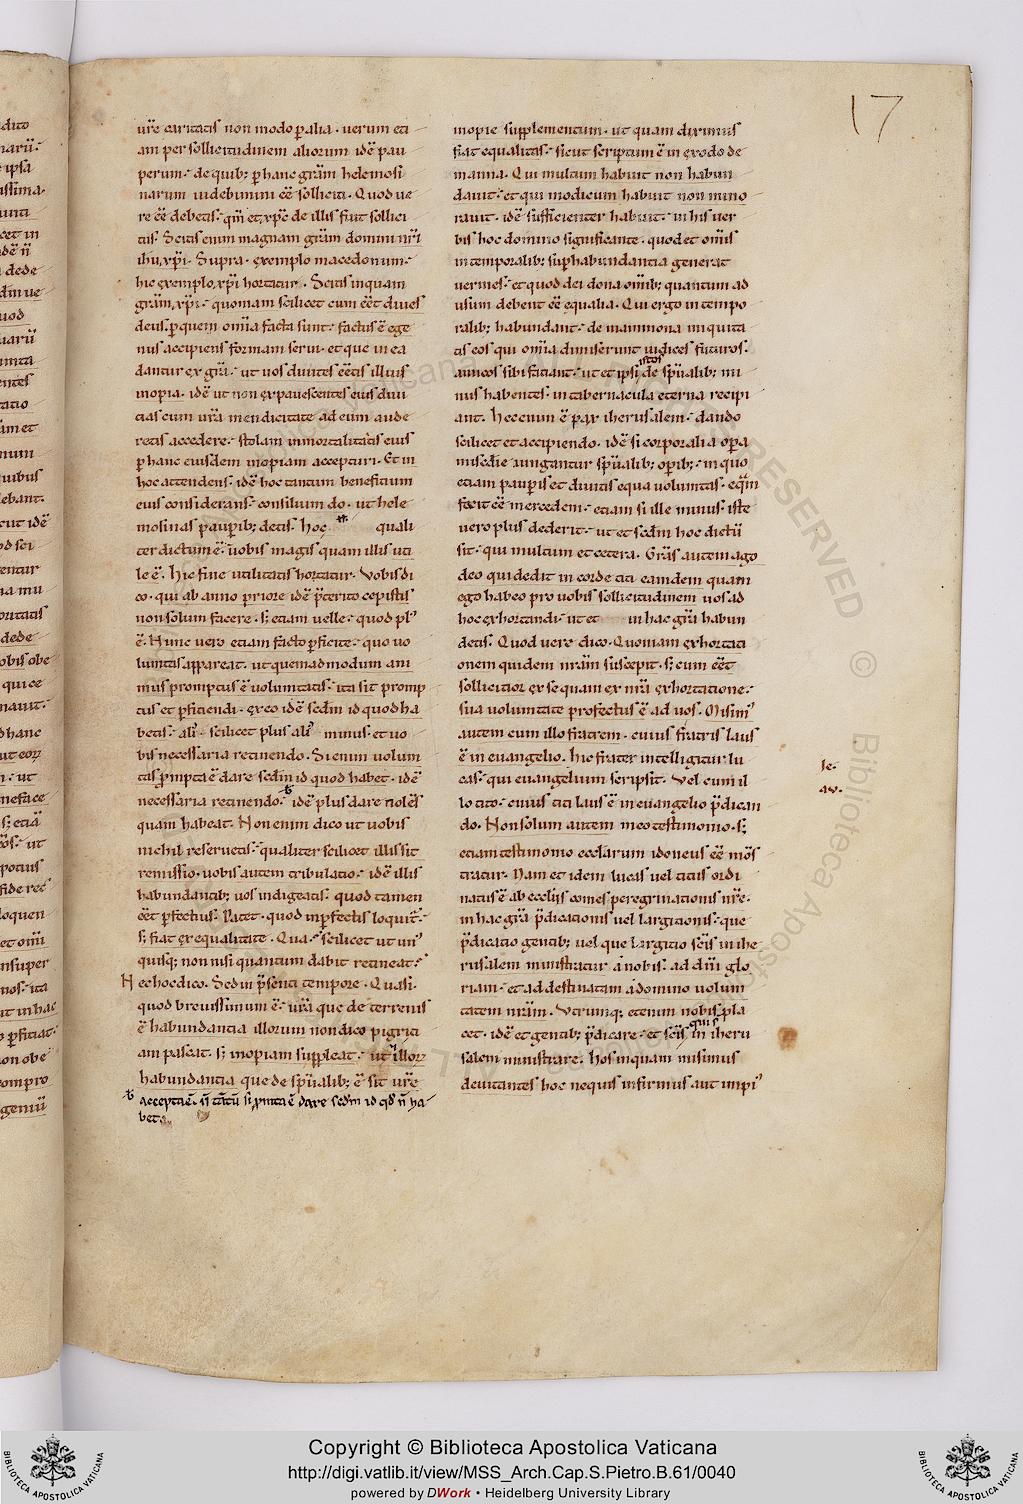 17
ur̅e caritatis non modo ꝑ alia. uerum eti
am per sollicitudinem aliorum idē̅ pau
perum. de quib; ꝑ hanc gr̅am helemosi
narum uidebimini ee̅ solliciti. Quod ue
re ee̅ debetis. qm̅ et xp̅c de illis fiut sollici
tus. Scitis enim magnam gr̅am domini nr̅i
ihu xp̅i. Supra. exemplo macedonum.
hic exemplo xp̅i hortatur. Scitis inquam
gr̅am xp̅i. quoniam scilicet cum ee̅t diues
deus. ꝑ quem om̅ia facta sunt. factus ē ege
nus accipiens formam serui. et que in ea
dantur ex gr̅a. ut uos diuites ee̅tis illius
inopia. idē ut non expauescentes eius diui
tias cum ur̅a mendicitate ad eum aude
retis accedere. stolam inmortalitatis eius
ꝑ hanc eiusdem inopiam accepturi. Et in
hoc attendens. idē hoc tantum beneficium
eius considerans. consilium do. ut hele
mosinas pauꝑib; detis. hoc quali
ter dictum ē. uobis magis quam illis uti
le ē. hic fine utilitatis hortatur. Vobis di
co. qui ab anno priore idē p̅terito cepistis
non solum facere. s; etiam uelle. quod pl'
ē. Nunc uero etiam facto ꝑficite. quo uo
luntas appareat. ut quemadmodum ani
mus promptus ē uoluntatis. ita sit promp
tus et ꝑficiendi. ex eo idē scd̅m id quod ha
betis. ali' scilicet plus ali' minus. et uo
bis necessaria retinendo. Si enim uolun
tas ꝓmpta ē dare scd̅m id quod habet. idē
necessaria retinendo. idē plus dare nolēs
quam habeat. Non enim dico ut uobis
nichil reseruetis. qualiter scilicet illis sit
remissio. uobis autem tribulatio. idē illis
habundantib; uos indigeatis. quod tamen
ee̅t ꝑfectius. Patet. quod inꝑfectis loquit̅.
s; fiat ex equalitate. Qua. scilicet ut un'
quisq; non nisi quantum dabit retineat.
Nec hoc dico. Sed in p̅senti tempore. Quasi.
quod breuissimum ē. ur̅a que de terrenis
ē habundantia illorum non dico pigriti
am pascat. s; inopiam suppleat. ut illoꝝ
habundantia que de sp̅ualib; ē sit ur̅e
acceptae. si ē dare scd̅m id qd̅ n̅ ha
bet.
inopie supplementum. ut quam diximus
fiat equalitas. sicut scriptum ē in exodo de
manna. Qui multum habuit non habun
dauit. et qui modicum habuit non mino
rauit. idē sufficienter habuit. in his uer
bis hoc domino significante. quod et om̅is
in temporalib; suꝑhabundantia generat
uermes. et quod dei dona om̅ib; quantum ad
usum debent ee̅ equalia. Qui ergo in tempo
ralib; habundant. de mammona iniquita
tis eos qui om̅ia dimiserunt iudices futuros.
istos
amicos sibi faciant. ut et ipsi de sp̅ualib; mi
nus habentes. in tabernacula eterna recipi
ant. Hec enim ē pax iherusalem. dando
scilicet et accipiendo. idē si corporalia oꝑa
misc̅die iungantur sp̅ualib; oꝑib;. in quo
etiam pauꝑis et diuitis equa uoluntas. eq̅m
fecit ee̅ mercedem. etiam si ille minus. iste
uero plus dederit. ut et scd̅m hoc dictu̅
sit. qui multum et cetera. Gr̅as autem ago
deo qui dedit in corde titi eamdem quam
ego habeo pro uobis sollicitudinem uos ad
hoc exhortandi. ut et in hac gr̅a habun
detis. Quod uere dico. Quoniam exhortati
onem quidem nr̅am suscepit. s; cum ee̅t
sollicitior ex se quam ex nr̅a exhortatione.
sua uoluntate profectus ē ad uos. Misim'
autem cum illo fratrem. cuius fratris laus
ē in euangelio. hic frater intelligitur lu
cas. qui euangelium scripsit. Vel cum il
lo tito. cuius titi laus ē in euangelio p̅dican
do. Non solum autem meo testimonio. s;
etiam testimonio eccl̅arum idoneus ee̅ mo̅s
tratur. Nam et idem lucas uel titus ordi
natus ē ab eccl̅iis comes peregrinationis nr̅e.
in hac gr̅a p̅dicationis uel largitionis. que
p̅dicatio gentib; uel que largitio sc̅is in ihe
rusalem ministratur a nobis. ad dn̅i glo
riam. et ad destinatam a domino uolun
tatem nr̅am. Vtrumq; etenim nobis pla
cet. idē et gentib; p̅dicare. et sc̅is qui s̅ in iheru
salem ministrare. Hos inquam misimus
deuitantes hoc nequis infirmus aut impi'
le.
au.
Copyright © Biblioteca Apostolica Vaticana
http://digi.vatlib.it/view/MSS_Arch.Cap.S.Pietro.B.61/0040
powered by DWork • Heidelberg University Library
BIBLIOTECA APOSTOLICA VATICANA
BIBLIOTECA APOSTOLICA VATICANA